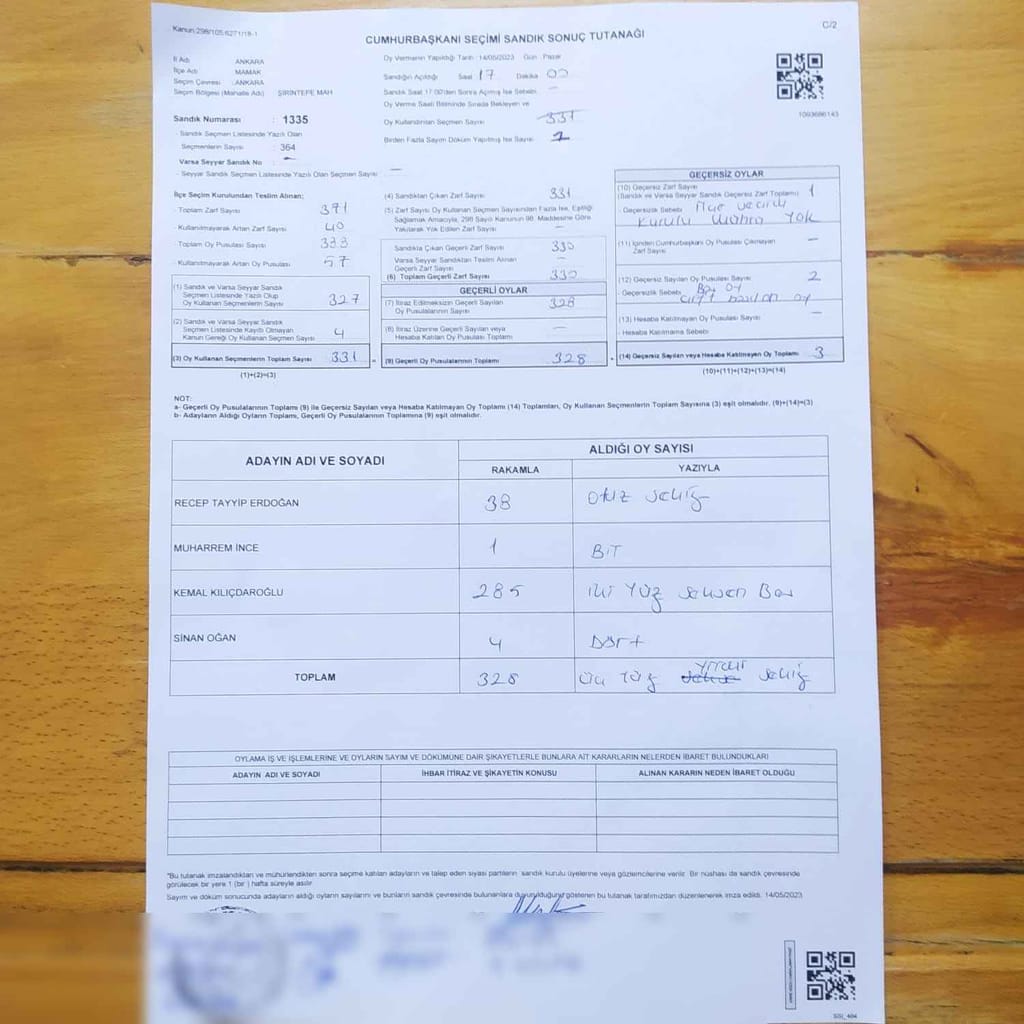 Kanun:298/105.6271/18-1
C/2
CUMHURBAŞKANI SEÇİMİ SANDIK SONUÇ TUTANAĞI
İl Adı ANKARA
İlçe Adı MAMAK
Seçim Çevresi : ANKARA
Seçim Bölgesi (Mahalle Adı) ŞİRİNTEPE MAH
Sandık Numarası : 1335
- Sandık Seçmen Listesinde Yazılı Olan
Seçmenlerin Sayısı : 364
Varsa Seyyar Sandık No : -
- Seyyar Sandık Seçmen Listesinde Yazılı Olan Seçmen Sayısı -
Oy Vermenin Yapıldığı Tarih : 14/05/2023 Gün : Pazar
Sandığın Açıldığı Saat 17 Dakika 00
Sandık Saat 17:00'den Sonra Açılmış İse Sebebi -
Oy Verme Saati Bitiminde Sırada Bekleyen ve
Oy Kullandırılan Seçmen Sayısı
Birden Fazla Sayım Döküm Yapılmış İse Sayısı
1093686143
İlçe Seçim Kurulundan Teslim Alınan;
- Toplam Zarf Sayısı 371
- Kullanılmayarak Artan Zarf Sayısı 40
- Toplam Oy Pusulası Sayısı
- Kullanılmayarak Artan Oy Pusulası 57
(1) Sandık ve Varsa Seyyar Sandık
Seçmen Listesinde Yazılı Olup
Oy Kullanan Seçmenlerin Sayısı 327
(2) Sandık ve Varsa Seyyar Sandık
Seçmen Listesinde Kayıtlı Olmayan
Kanun Gereği Oy Kullanan Seçmen Sayısı 4
(3) Oy Kullanan Seçmenlerin Toplam Sayısı 331 =
(1)+(2)=(3)
(4) Sandıktan Çıkan Zarf Sayısı 331
(5) Zarf Sayısı Oy Kullanan Seçmen Sayısından Fazla İse, Eşitliği
Sağlamak Amacıyla, 298 Sayılı Kanunun 98. Maddesine Göre
Yakılarak Yok Edilen Zarf Sayısı -
Sandıkta Çıkan Geçerli Zarf Sayısı 330
Varsa Seyyar Sandıktan Teslim Alınan
Geçerli Zarf Sayısı -
(6) Toplam Geçerli Zarf Sayısı 330
GEÇERLİ OYLAR
(7) İtiraz Edilmeksizin Geçerli Sayılan
Oy Pusulasının Sayısı 328
(8) İtiraz Üzerine Geçerli Sayılan veya
Hesaba Katılan Oy Pusulası Toplamı -
(9) Geçerli Oy Pusulalarının Toplamı 328 +
GEÇERSİZ OYLAR
(10) Geçersiz Zarf Sayısı
(Sandık ve Varsa Seyyar Sandık Geçersiz Zarf Toplamı) 1
- Geçersizlik Sebebi İlçe seçim
kurulu Mührü YOK
(11) İçinden Cumhurbaşkanı Oy Pusulası Çıkmayan
Zarf Sayısı -
(12) Geçersiz Sayılan Oy Pusulası Sayısı 2
- Geçersizlik Sebebi Boş oy
çift basılan oy
(13) Hesaba Katılmayan Oy Pusulası Sayısı -
- Hesaba Katılmama Sebebi
(14) Geçersiz Sayılan veya Hesaba Katılmayan Oy Toplamı 3
(10)+(11)+(12)+(13)=(14)
NOT:
a- Geçerli Oy Pusulalarının Toplamı (9) ile Geçersiz Sayılan veya Hesaba Katılmayan Oy Toplamı (14) Toplamları, Oy Kullanan Seçmenlerin Toplam Sayısına (3) eşit olmalıdır. (9)+(14)=(3)
b- Adayların Aldığı Oyların Toplamı, Geçerli Oy Pusulalarının Toplamına (9) eşit olmalıdır.
ADAYIN ADI VE SOYADI
ALDIĞI OY SAYISI
RAKAMLA YAZIYLA
RECEP TAYYİP ERDOĞAN 38 Otuz sekiz
MUHARREM İNCE 1 BİT
KEMAL KILIÇDAROĞLU 285 iki YÜZ seksen Beş
SİNAN OĞAN 4 Dört
TOPLAM 328 Üç YÜZ yirmi sekiz
OYLAMA İŞ VE İŞLEMLERİNE VE OYLARIN SAYIM VE DÖKÜMÜNE DAİR ŞİKAYETLERLE BUNLARA AİT KARARLARIN NELERDEN İBARET BULUNDUKLARI
ADAYIN ADI VE SOYADI İHBAR İTİRAZ VE ŞİKAYETİN KONUSU ALINAN KARARIN NEDEN İBARET OLDUĞU
"Bu tutanak imzalandıktan ve mühürlendikten sonra seçime katılan adayların ve talep eden siyasi partilerin sandık kurulu üyelerine veya gözlemcilerine verilir. Bir nüshası da sandık çevresinde
görülecek bir yere 1 (bir ) hafta süreyle asılır
Sayım ve döküm sonucunda adayların aldığı oyların sayılarını ve bunların sandık çevresinde bulunanlara duyurulduğunu gösteren bu tutanak tarafımızdan düzenlenerek imza edildi. 14/05/2023
SSİ_404